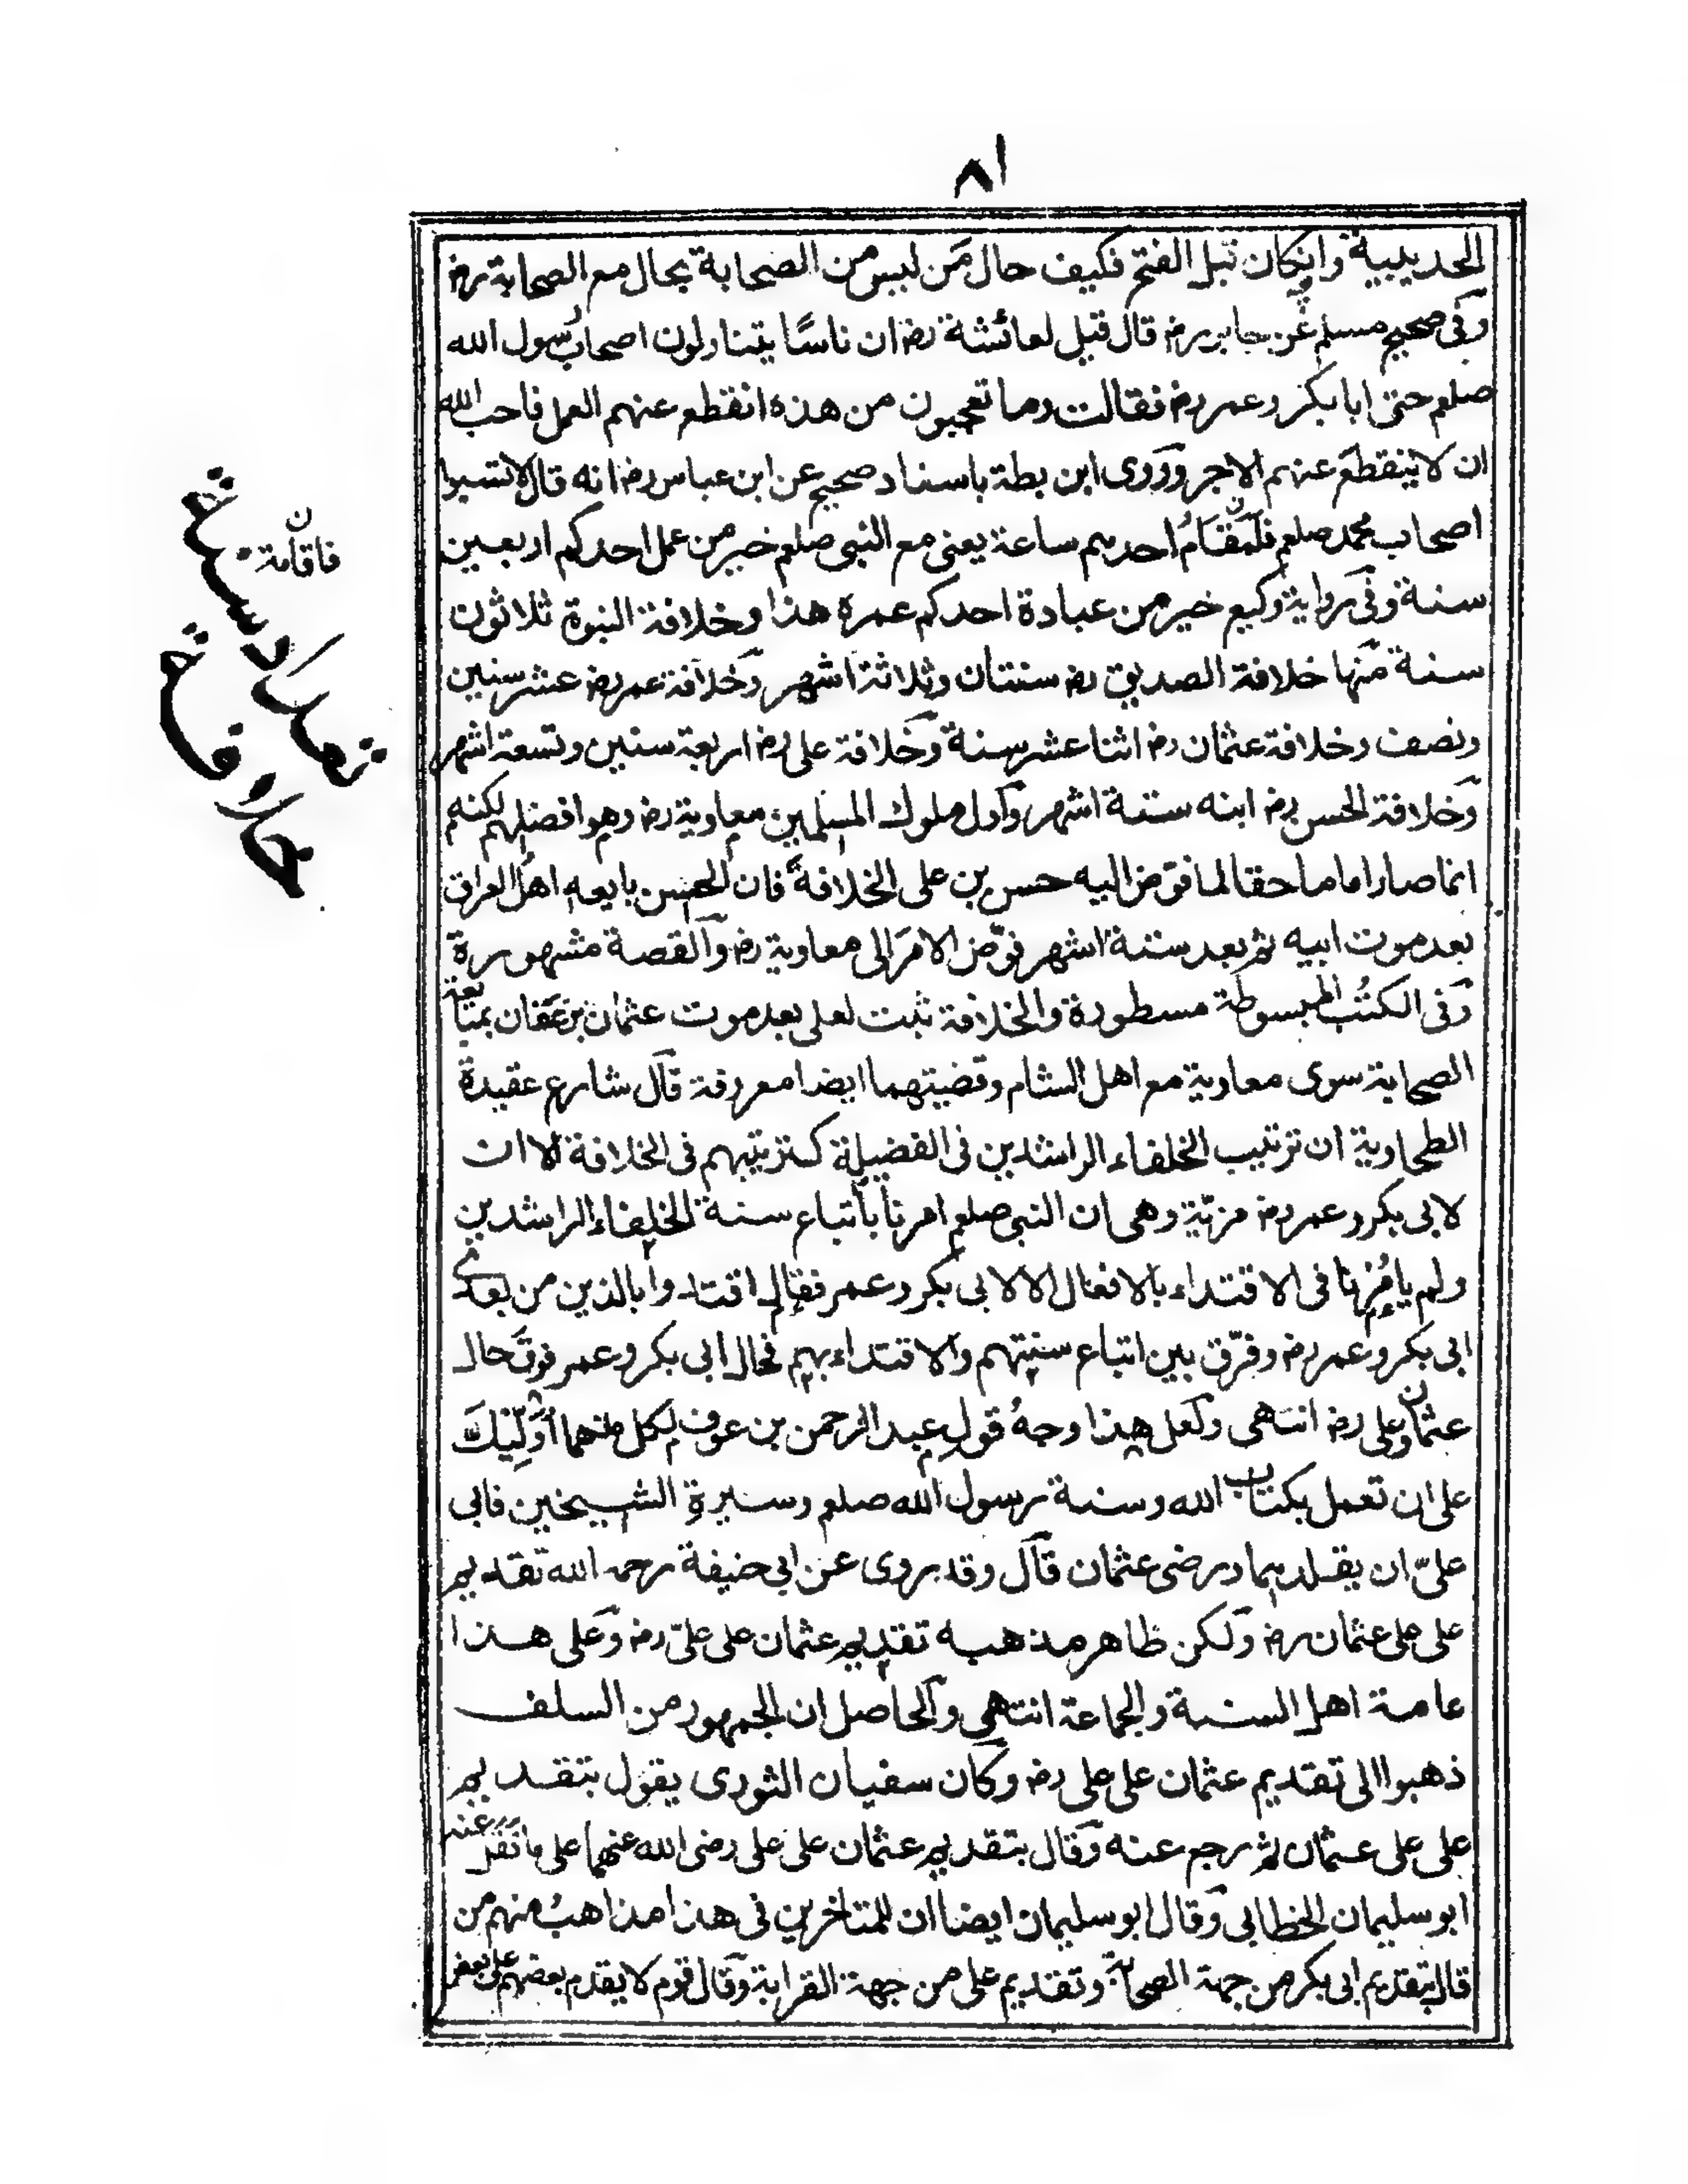 ٨١
الحديبية وانكان قبل الفتح فكيف حال من ليس من الصحابة بحال مع الصحابة رض
وفى صحيح مسلم عن جابر رض قال قيل لعائشة رض ان ناسًا يتناولون اصحاب رسول الله
صلعم حتى ابا بكر وعمر رض فقالت وما تعجبون من هذه انقطع عنهم العمل فاحب الله
ان لا ينقطع عنهم الاجر وروى ابن بطة باسناد صحيح عن ابن عباس رض انه قال لا تسبوا
اصحاب محمد صلعم فلمقام احدهم ساعة يعنى مع النبى صلعم خير من عمل احدكم اربعين
سنة وفى رواية وكيع خير من عبادة احدكم عمره هذا وخلافة النبوة ثلاثون
سنة منها خلافة الصديق رض سنتان وثلاثة اشهر وخلافة عمر رض عشر سنين
ونصف وخلافة عثمان رض اثنا عشر سنة وخلافة على رض اربعة سنين وتسعة اشهر
وخلافة الحسن رض ابنه ستة اشهر واول ملوك المسلمين معاوية رض وهو افضلهم لكنه
انما صار اماما حقا لما فوّض اليه حسن بن على الخلافة فان الحسن بايعه اهل العراق
بعد موت ابيه ثم بعد ستة اشهر فوّض الامر الى معاوية رض والقصة مشهورة
وفى الكتب المبسوطة مسطورة والخلافة ثبت لعلى بعد موت عثمان بن عفان بمتابعة
الصحابة سوى معاوية مع اهل الشام وقضيتهما ايضا معروفة قال شارع عقيدة
الطحاوية ان ترتيب الخلفاء الراشدين فى الفضيلة كترتيبهم فى الخلافة الا ان
لابى بكر وعمر رض مزيّة وهى ان النبى صلعم امرنا باتباع سنة الخلفاء الراشدين
ولم يامُرنا فى الاقتداء بالافعال الا لابى بكر وعمر فقال اقتدوا بالذين من بعدى
ابى بكر وعمر رض وفرّق بين اتباع سنتهم والاقتداء بهم فحال ابى بكر وعمر فوق حال
عثمان وعلى رض انتهى ولعل هذا وجهُ قول عبد الرحمن بن عوف لكل منهما اُوَلِّيكَ
على ان تعمل بكتاب الله وسنة رسول الله صلعم وسيرة الشيخين فابى
علىّ ان يقلدهما ورضى عثمان قال وقد روى عن ابى حنيفة رحمه الله تقديم
على على عثمان رض ولكن ظاهر مذهبه تقديم عثمان على علىّ رض وعلى هذا
عامة اهل السنة والجماعة انتهى والحاصل ان الجمهور من السلف
ذهبوا الى تقديم عثمان على على رض وكان سفيان الثورى يقول بتقديم
على على عثمان ثم رجع عنه وقال بتقديم عثمان على على رضى الله عنهما على ما نقل عنه
ابو سليمان الخطابى وقال ابو سليمان ايضا ان للمتاخرين فى هذا مذاهبُ منهم من
قال بتقديم ابى بكر من جهة الصحابة وتقديم على من جهة القرابة وقال قوم لا يقدم بعضهم على بعض
فاقامة ن
تعداد سنة
خلافة